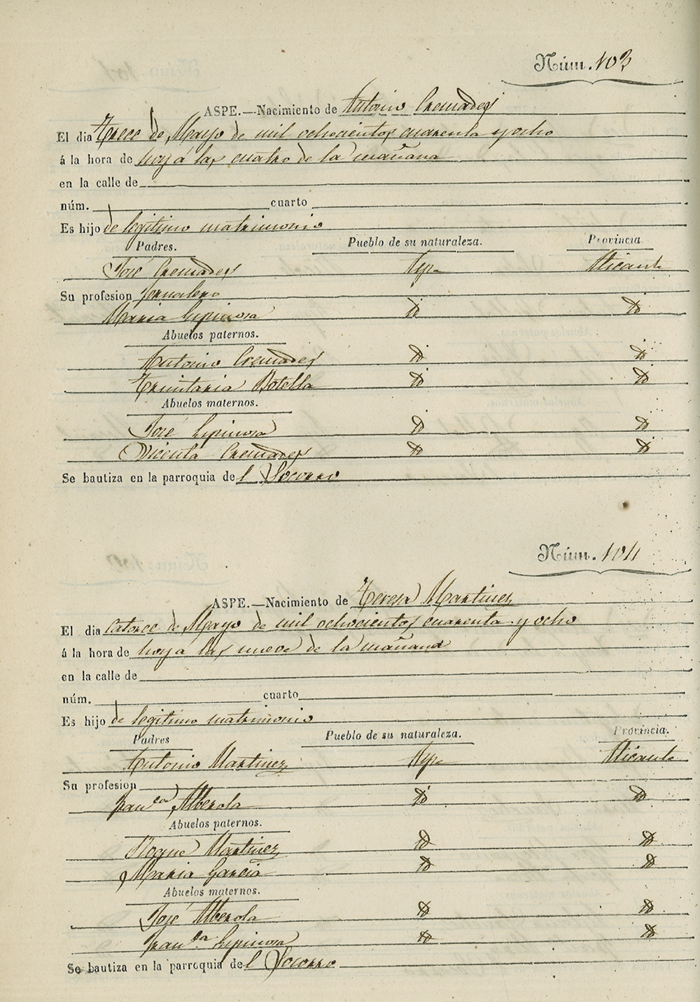 Núm. 103
ASPE.—Nacimiento de Antonio Cremades
El dia Trece de Mayo de mil ochocientos cuarenta y ocho
á la hora de hoy á las cuatro de la mañana
en la calle de
núm. cuarto
Es hijo de legitimo matrimonio
Padres. Pueblo de su naturaleza. Provincia
José Cremades Aspe Alicante
Su profesion Jornalero
Maria Espinosa id id
Abuelos paternos.
Antonio Cremades id id
Trinitaria Botella id id
Abuelos maternos.
José Espinosa id id
Vicenta Cremades id id
Se bautiza en la parroquia de l Socorro
Núm. 104
ASPE.—Nacimiento de Teresa Martinez
El dia catorce de Mayo de mil ochocientos cuarenta y ocho
á la hora de hoy a las nueve de la mañana
en la calle de
núm. cuarto
Es hijo de legitimo matrimonio
Padres Pueblo de su naturaleza. Provincia.
Antonio Martinez Aspe Alicante
Su profesion
Franca Alberola id id
Abuelos paternos.
Roque Martinez id id
Maria Garcia id id
Abuelos maternos.
José Alberola id id
Franca Espinosa id id
Se bautiza en la parroquia de l Socorro